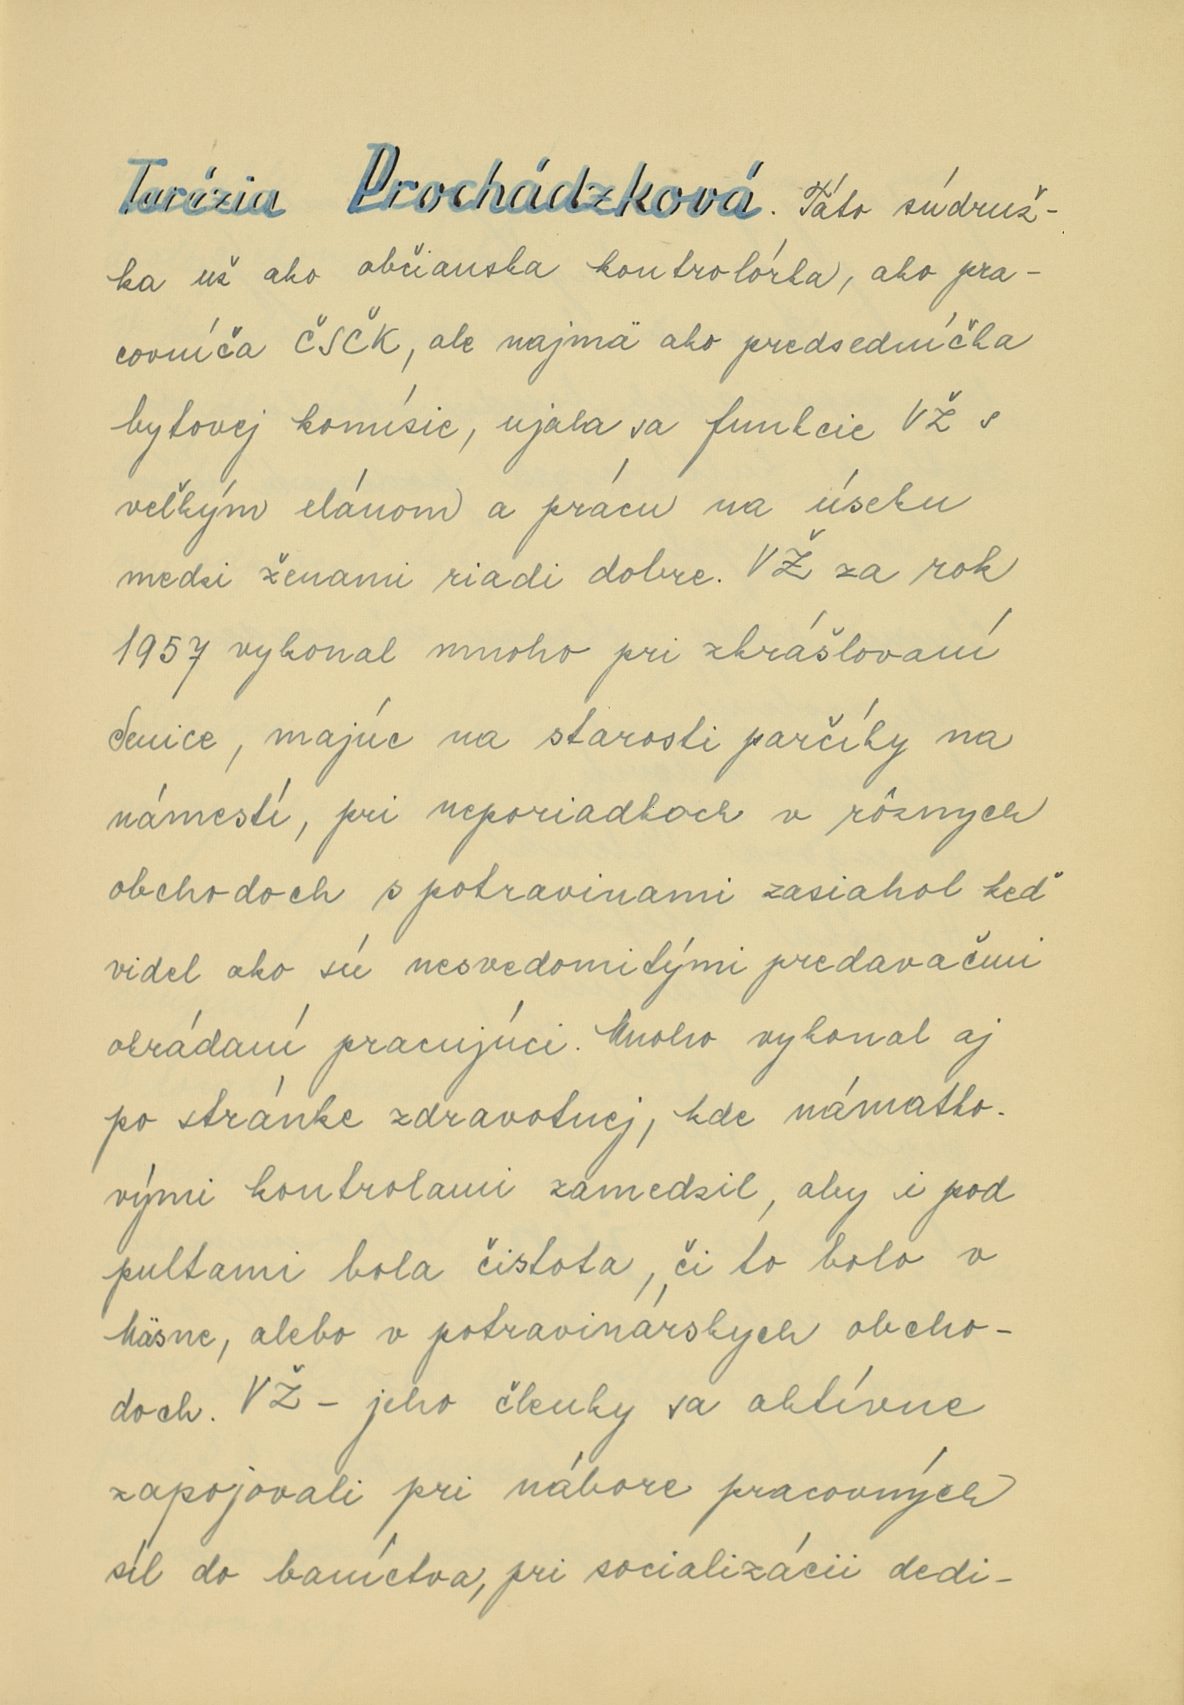 Terézia Prochádzková. Táto súdruž-
ka už ako občianska kontrolórka, ako pra-
covníča ČSČK, ale najmä ako predsedníčka
bytovej komísie, ujala sa funkcie VŽ s
veľkým elánom a prácu na úseku
medzi ženami riadi dobre. VŽ za rok
1957 vykonal mnoho pri zkrášlovaní
Senice, majúc na starosti parčíky na
námestí, pri neporiadkoch v rôznych
obchodoch s potravinami zasiahol keď
videl ako sú nesvedomitými predavačmi
okrádaní pracujúci. Mnoho vykonal aj
po stránke zdravotnej, kde námatko-
vými kontrolami zamedzil, aby i pod
pultami bola čistota, či to bolo v
Mäsne, alebo v potravinárskych obcho-
doch. VŽ - jeho členky sa aktívne
zapojovali pri nábore pracovných
síl do baníctva, pri socializácii dedi-